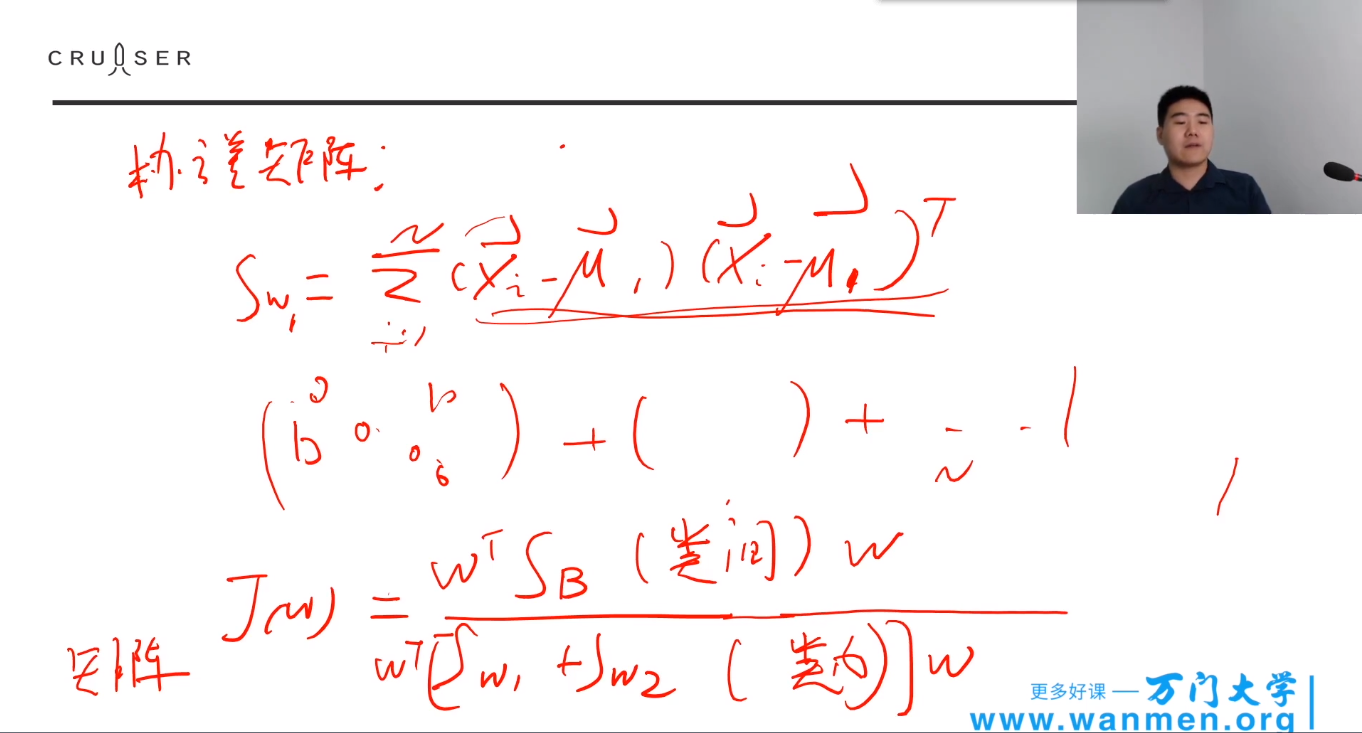 CRUISER
协方差矩阵:
S_{w_1} = \sum_{i=1}^{N} (\vec{x}_i - \vec{\mu}_1)(\vec{x}_i - \vec{\mu}_1)^T
( ) + ( ) + N
J(w) = \frac{w^T S_B (类间) w}{w^T [S_{w_1} + S_{w_2} (类内)] w}
矩阵
更多好课 — 万门大学
www.wanmen.org